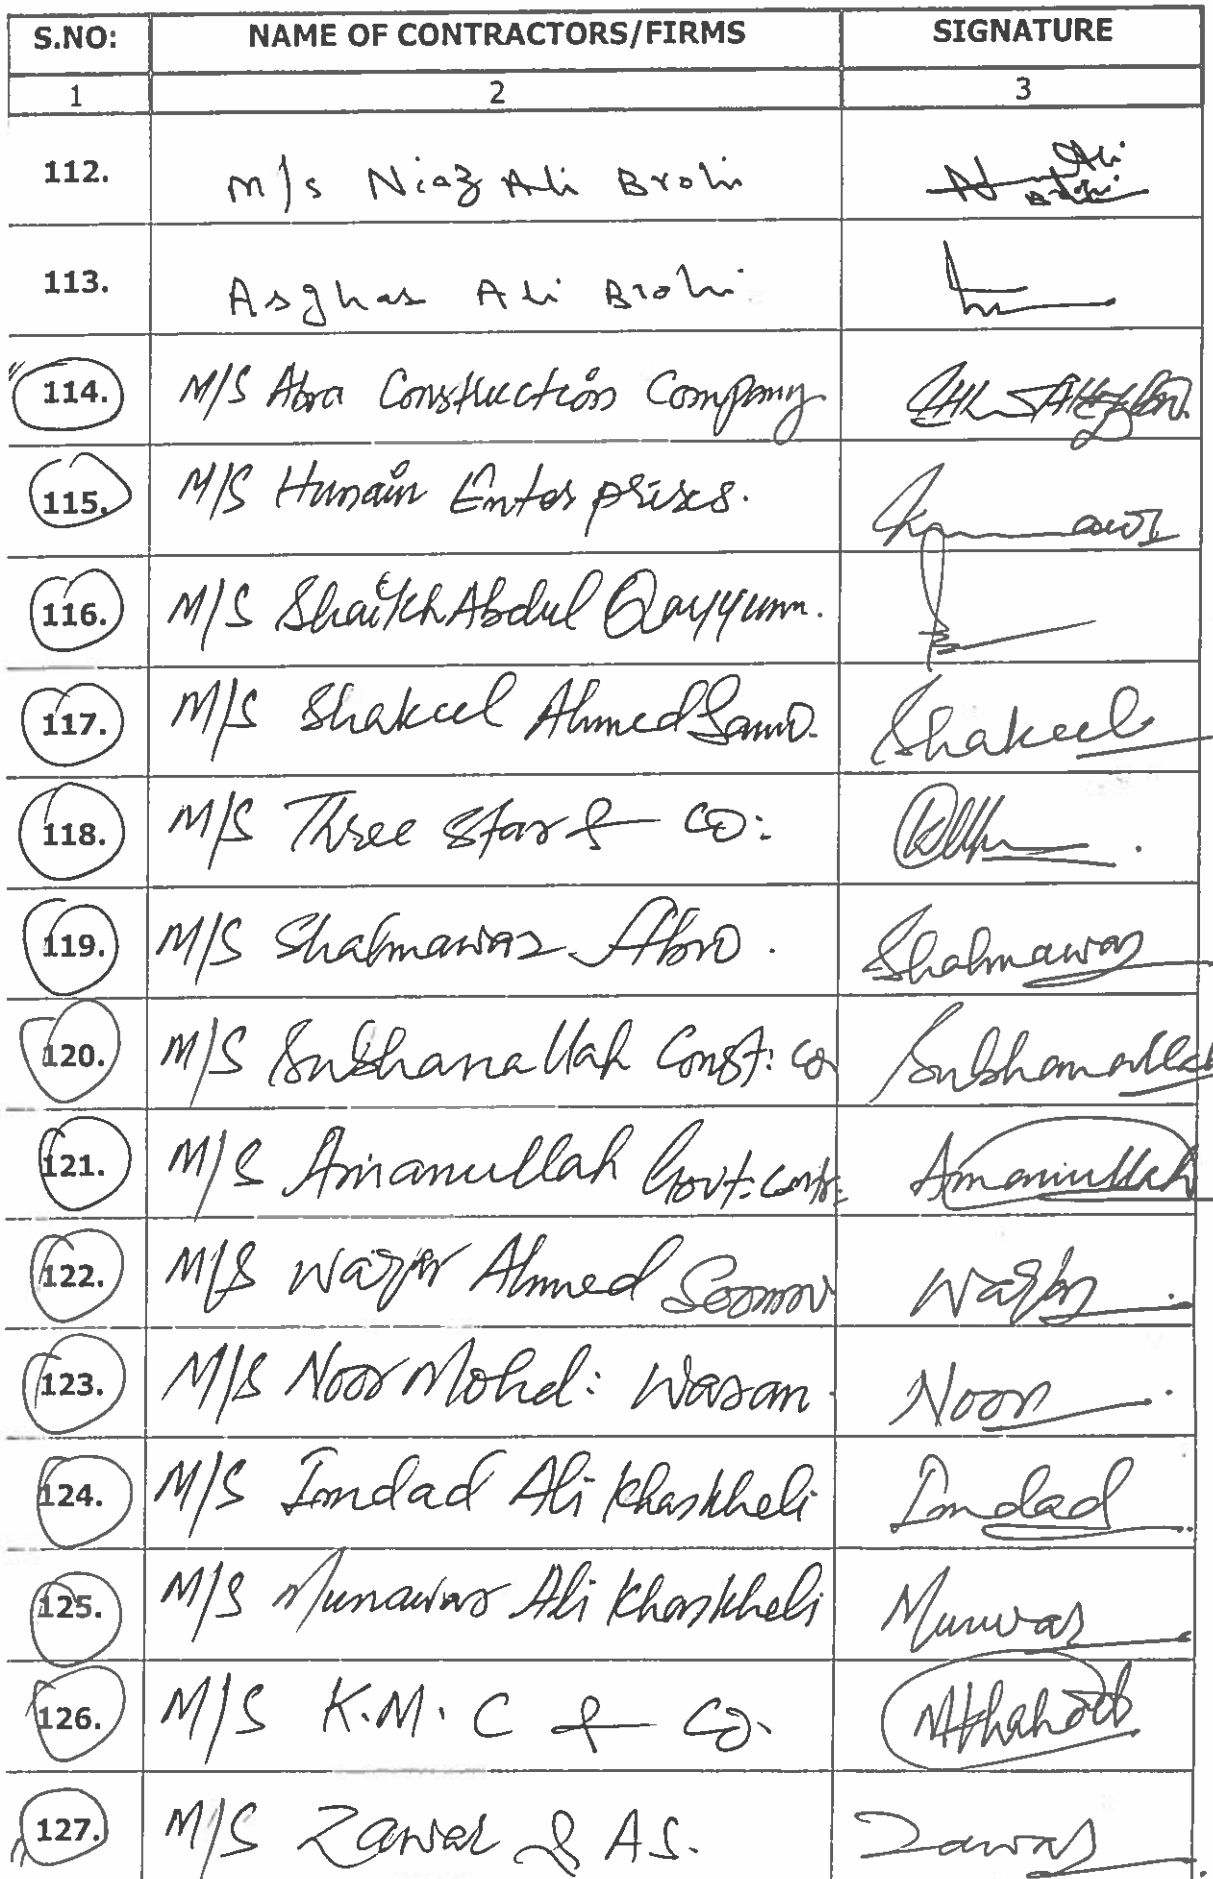 S.NO: NAME OF CONTRACTORS/FIRMS SIGNATURE
1 2 3
112. M/s Niaz Ali Brohi
113. Asghar Ali Brohi
114. M/S Abra Construction Company
115. M/S Hunain Enterprises.
116. M/S Shaikh Abdul Qayyum.
117. M/S Shakeel Ahmed Samo. Shakeel
118. M/S Three Star & CO:
119. M/S Shahnawaz Abro. Shahnawaz
120. M/S Subhanallah Const: Co Subhanallah
121. M/S Amanullah Govt: Contr: Amanullah
122. M/S Wazir Ahmed Soomro Wazir
123. M/S Noor Mohd: Wasan Noor
124. M/S Imdad Ali Khaskheli Imdad
125. M/S Munawar Ali Khaskheli Munwar
126. M/S K.M.C & Co.
127. M/S Zawar & AS. Zawar